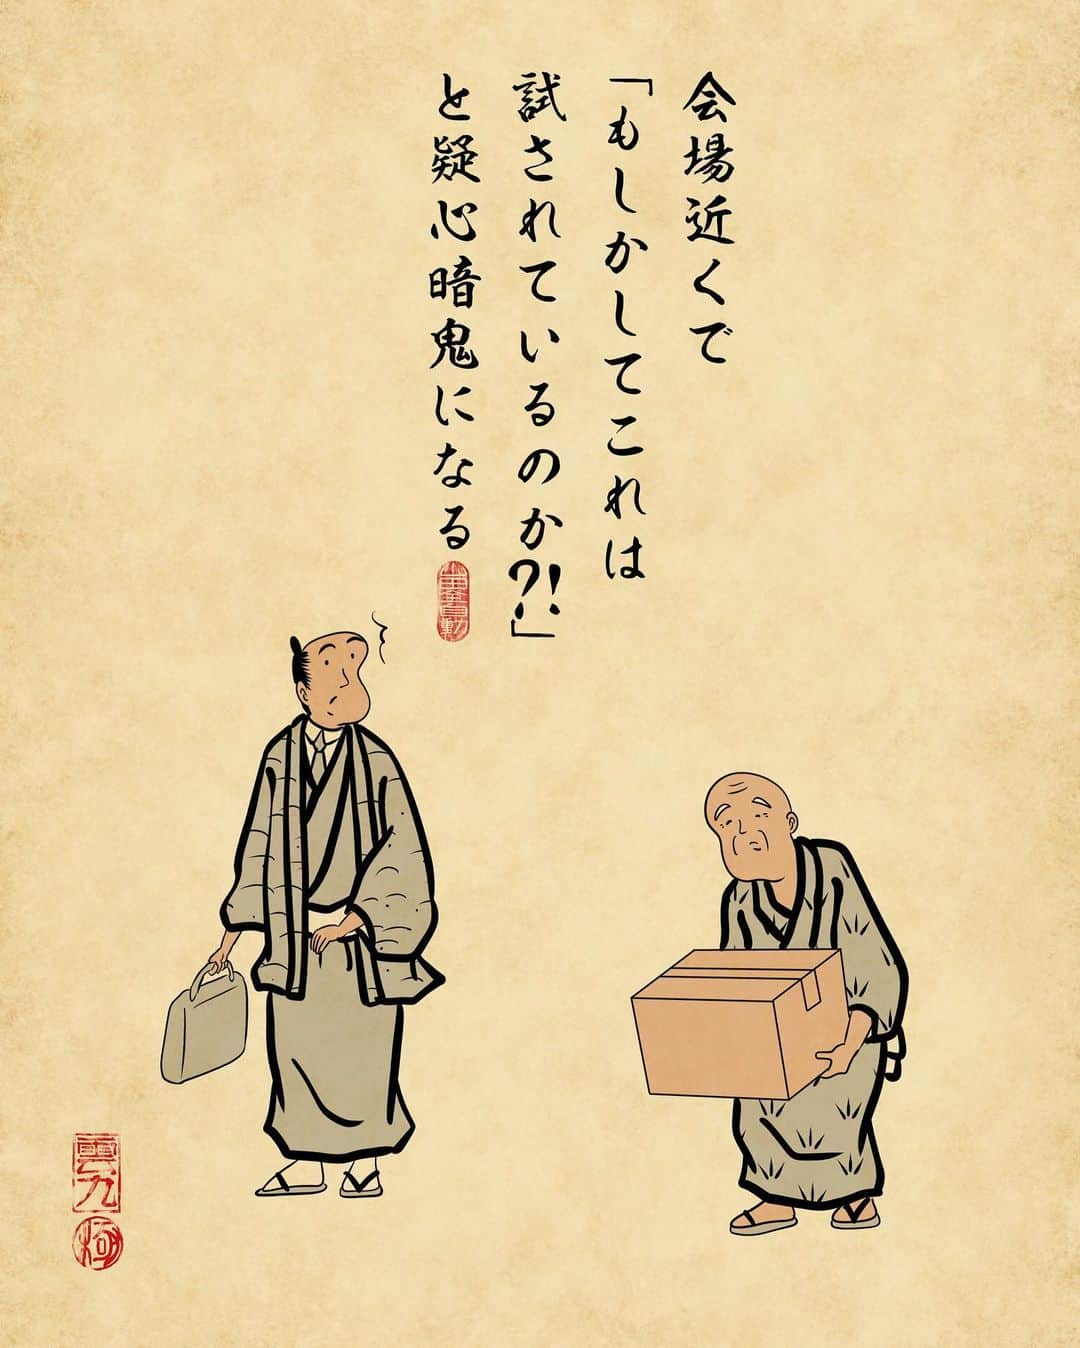 会場近くで
「もしかしてこれは
試されているのか⁈」
と疑心暗鬼になる